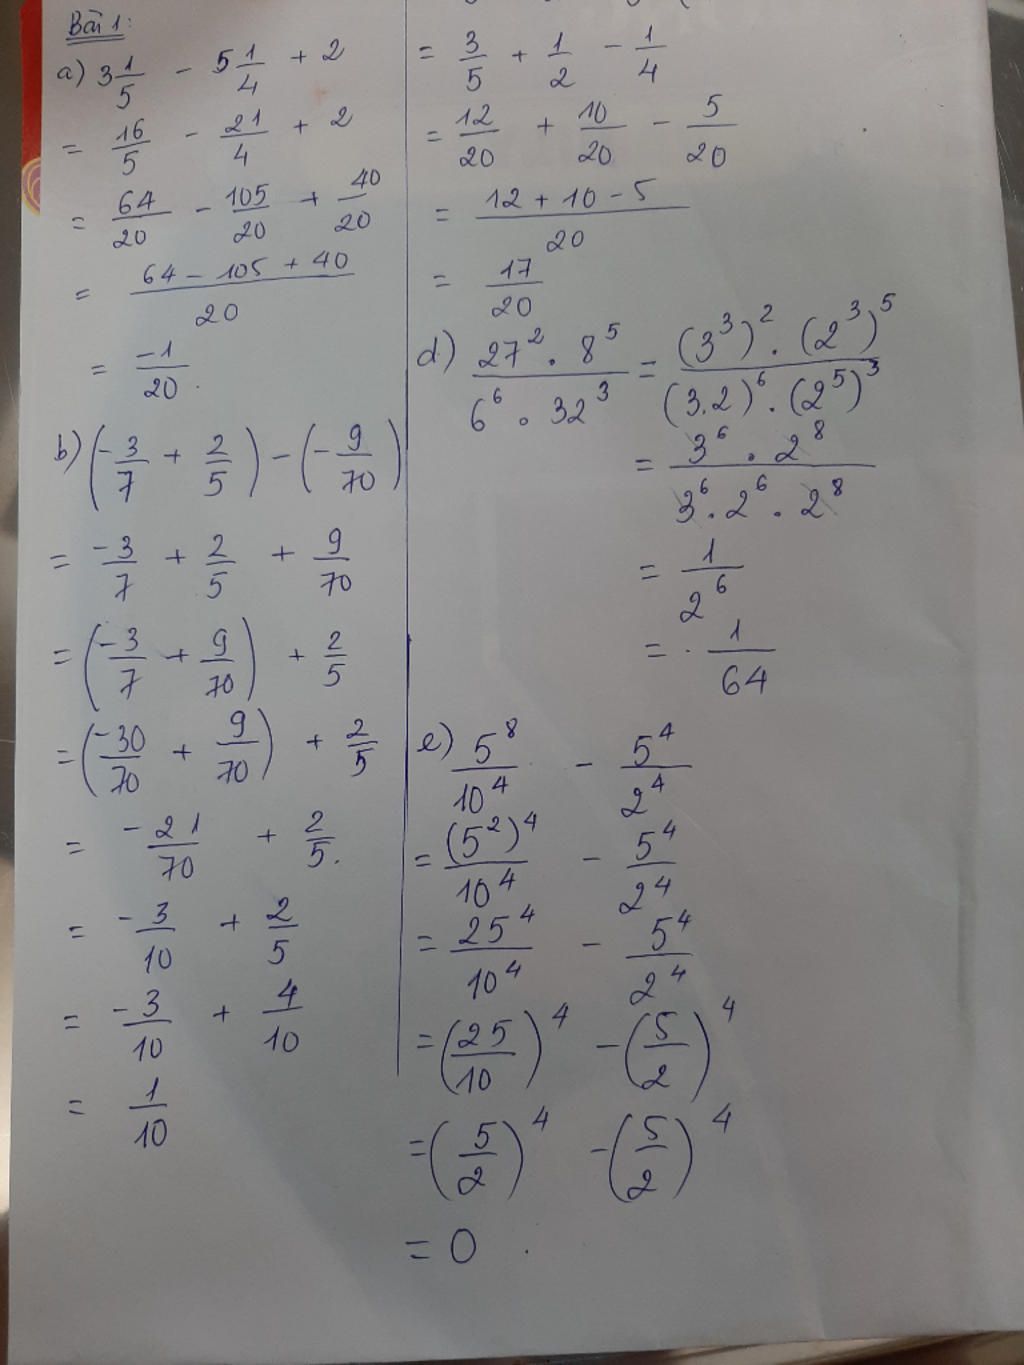 Bài 1:
a) 3 1/5 - 5 1/4 + 2
= 16/5 - 21/4 + 2
= 64/20 - 105/20 + 40/20
= (64 - 105 + 40)/20
= -1/20.
b) (-3/7 + 2/5) - (-9/70)
= -3/7 + 2/5 + 9/70
= (-3/7 + 9/70) + 2/5
= (-30/70 + 9/70) + 2/5
= -21/70 + 2/5.
= -3/10 + 2/5
= -3/10 + 4/10
= 1/10
= 3/5 + 1/2 - 1/4
= 12/20 + 10/20 - 5/20
= (12 + 10 - 5)/20
= 17/20
d) (27² . 8⁵)/(6⁶ . 32³) = ((3³)² . (2³)⁵)/((3.2)⁶ . (2⁵)³)
= (3⁶ . 2⁸)/(3⁶ . 2⁶ . 2⁸)
= 1/2⁶
= 1/64
e) 5⁸/10⁴ - 5⁴/2⁴
= (5²)⁴/10⁴ - 5⁴/2⁴
= 25⁴/10⁴ - 5⁴/2⁴
= (25/10)⁴ - (5/2)⁴
= (5/2)⁴ - (5/2)⁴
= 0